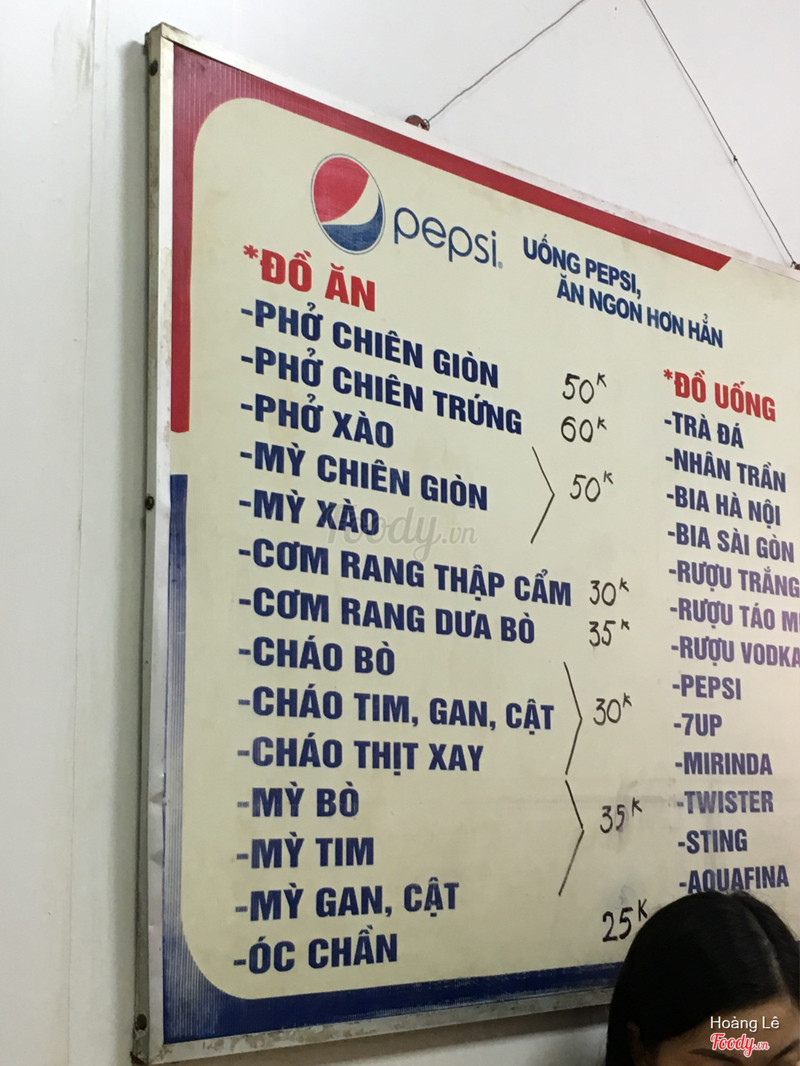 pepsi
UỐNG PEPSI,
ĂN NGON HƠN HẲN
*ĐỒ ĂN
-PHỞ CHIÊN GIÒN 50K
-PHỞ CHIÊN TRỨNG 60K
-PHỞ XÀO
-MỲ CHIÊN GIÒN 50K
-MỲ XÀO
-CƠM RANG THẬP CẨM 30K
-CƠM RANG DƯA BÒ 35K
-CHÁO BÒ
-CHÁO TIM, GAN, CẬT 30K
-CHÁO THỊT XAY
-MỲ BÒ 35K
-MỲ TIM
-MỲ GAN, CẬT
-ÓC CHẦN 25K
*ĐỒ UỐNG
-TRÀ ĐÁ
-NHÂN TRẦN
-BIA HÀ NỘI
-BIA SÀI GÒN
-RƯỢU TRẮNG
-RƯỢU TÁO
-RƯỢU VODKA
-PEPSI
-7UP
-MIRINDA
-TWISTER
-STING
-AQUAFINA
foody.vn
Hoàng Lê
Foody.vn